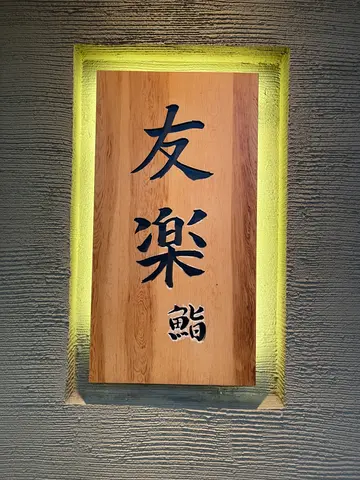 友楽
鮨